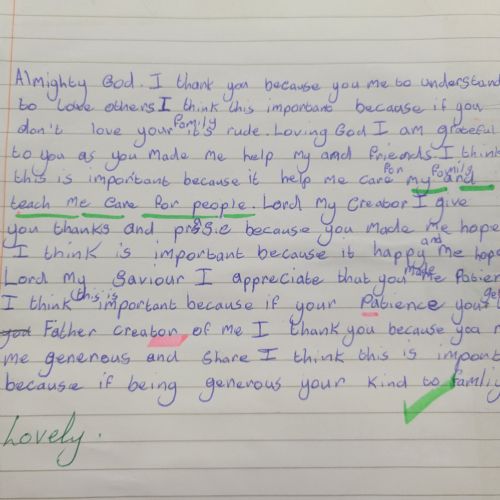 Almighty God. I thank you because you me to understand
to love others I think this important because if you
don't love your family it's rude. Loving God I am grateful
to you as you made me help my and friends. I think
this is important because it help me care for my family and
teach me care for people. Lord my Creator I give
you thanks and praise because you made me hope
I think is important because it happy and me hope
Lord my Saviour I appreciate that you made me Patien
I think (this is important because if your Patience your get
god Father creator of me I thank you because you m
me generous and share I think this is import
because if being generous your kind to family
Lovely.